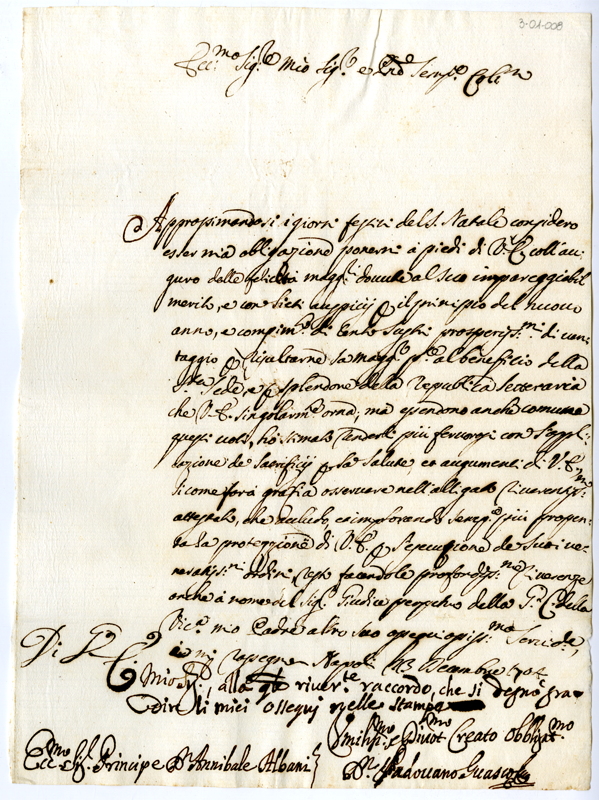 3-01-008
Ecc.mo Sig.re mio Sig.re e Pne Semp.e Col.mo
Approssimandosi i giorni festivi del S. Natale considero
esser mia obligazione pormi à piedi di V.E. coll'au:
guro delle felicità magg.ri dovute al suo impareggiabil
merito, e con lieti auspicij il principio del nuovo
anno, e compim.to di tanti prosperiss.mi di van:
taggio risultarne la magg.r al beneficio della
S.ta Sede, e splendore della Republica letteraria
che V.E. singolarm.te orna, ma essendo anche comune
questi voti, hò stimato renderli più fervorosi con l'appli:
cazione de Sacrificij p la salute, et augumenti di V.E.
si come farà grazia osservare nell'alligato riverentiss.mo
attestato, che accludo, et implorando semp.e più propen:
sa la protezzione di V.E. p l'esecuzione de suoi ve:
neratiss.mi ordini resto facendole profondiss.me riverenze
anche à nome del Sig.r Giudice perpetuo della G.C. della
Vic.a mio Padre altro suo ossequiosiss.mo Serv.re,
e mi rassegno Napoli 23 Dicembre 1704
Di V.E.
Mio Sig.re, alla river.te raccordo, che si degni gra-
dire li miei ossequj nelle stampe
Umiliss.mo e Divot.mo Creato Obbligat.mo
Ecc.mo Sig.r Principe D. Annibale Albani
D. Padovano Guasco